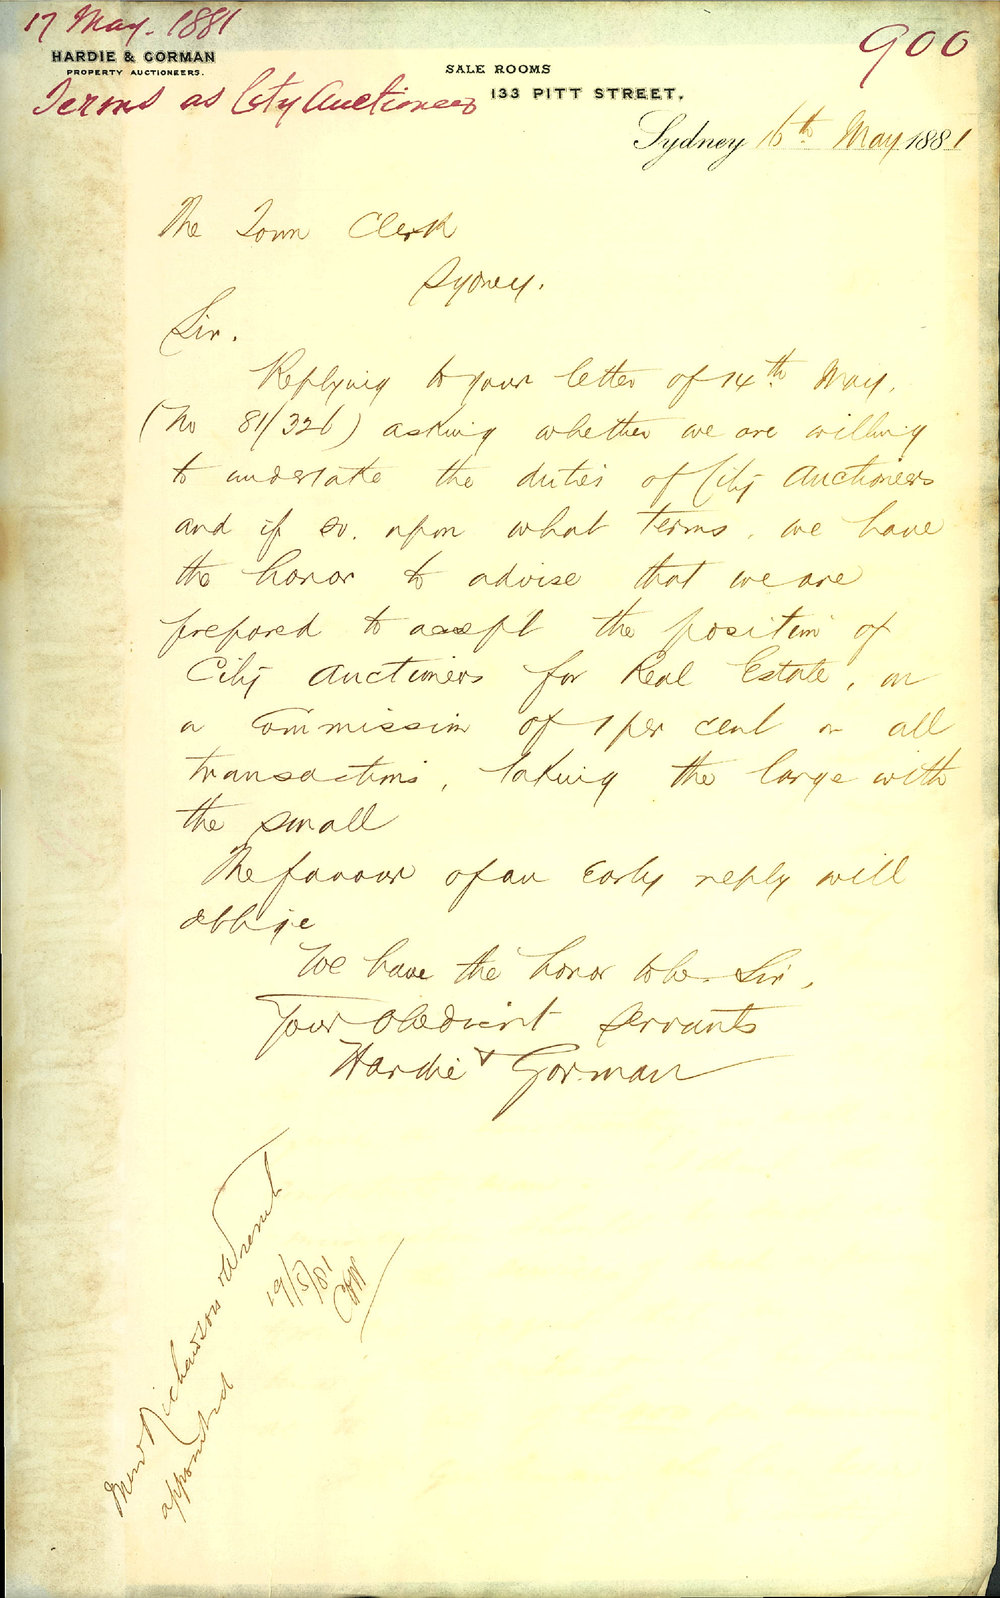 17 May. 1881
900
HARDIE & GORMAN
PROPERTY AUCTIONEERS.
SALE ROOMS
133 PITT STREET.
Terms as City Auctioneers
Sydney 16th May 1881
The Town Clerk
Sydney.
Sir.
Replying to your letter of 14th May.
(No 81/326) asking whether we are willing
to undertake the duties of City Auctioneers
and if so. upon what terms, we have
the honor to advise that we are
prepared to accept the position of
City Auctioneers for Real Estate, on
a Commission of 1 per cent on all
transactions, taking the large with
the small
The favour of an Early reply will
oblige
We have the honor to be. Sir,
Your Obedient Servants
Hardie & Gorman
Messrs Richardson & Wrench
appointed
19/5/81